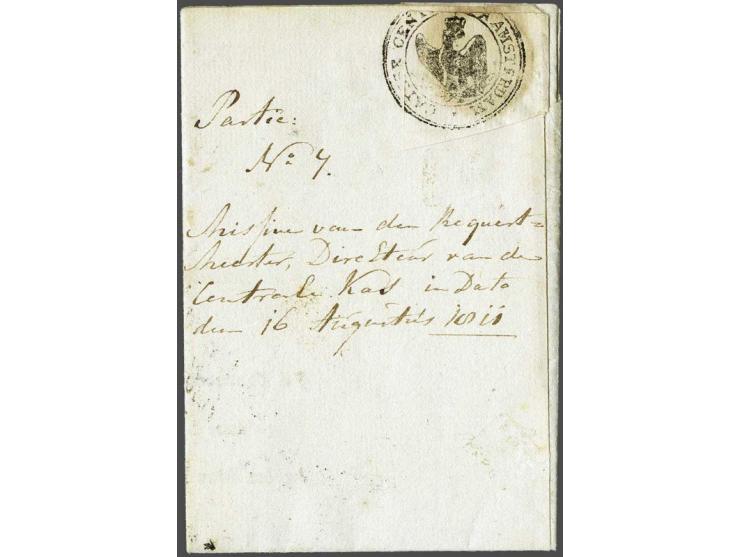 CAISSE CENT A AMSTERDAM
Partie:
No 7.
Missive van den Request=
Meester, Directeur van de
Centrale Kas in Dato
den 16 Augustus 1811